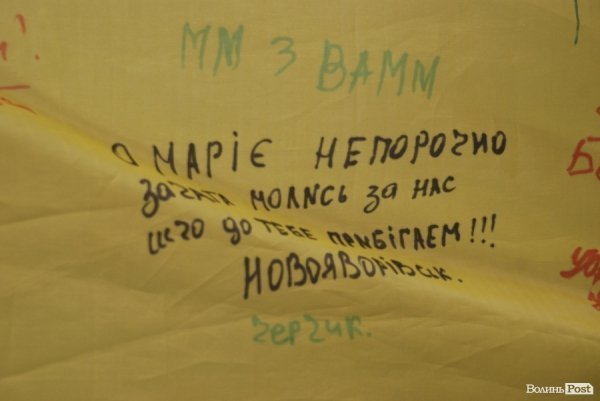 ММ З ВАММ
О МАРІЄ НЕПОРОЧНО
ЗАЧАТА МОЛИСЬ ЗА НАС
ШЧО ДО ТЕБЕ ПРИБІГАЄМ!!!
НОВОЯВОРІВСЬК.
ЧЕРЧИК.
ВолиньPost